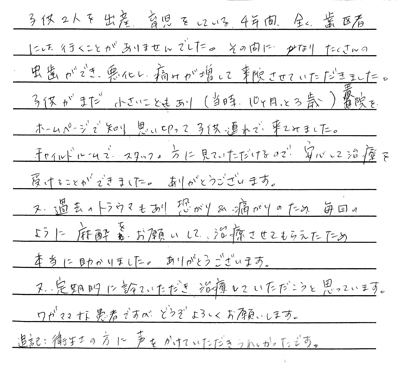 子供2人を出産、育児をしている4年間、全く歯医者
にも行くことがありませんでした。その間に、かなりたくさんの
虫歯ができ、悪化し、痛みが増して来院させていただきました。
子供がまだ小さいこともあり(当時、10ヶ月と3歳)貴院を
ホームページで知り思い切って子供連れで来てみました。
チャイルドルームでスタッフの方に見ていただけるので安心して治療を
受けることができました。ありがとうございます。
又、過去のトラウマもあり恐がり&痛がりのため毎回の
ように麻酔をお願いして、治療させてもらえたため
本当に助かりました。ありがとうございます。
又、定期的に診ていただき治療していただこうと思っています。
ワガママな患者ですがどうぞよろしくお願いします。
追記:衛生士の方に声をかけていただきうれしかったです。